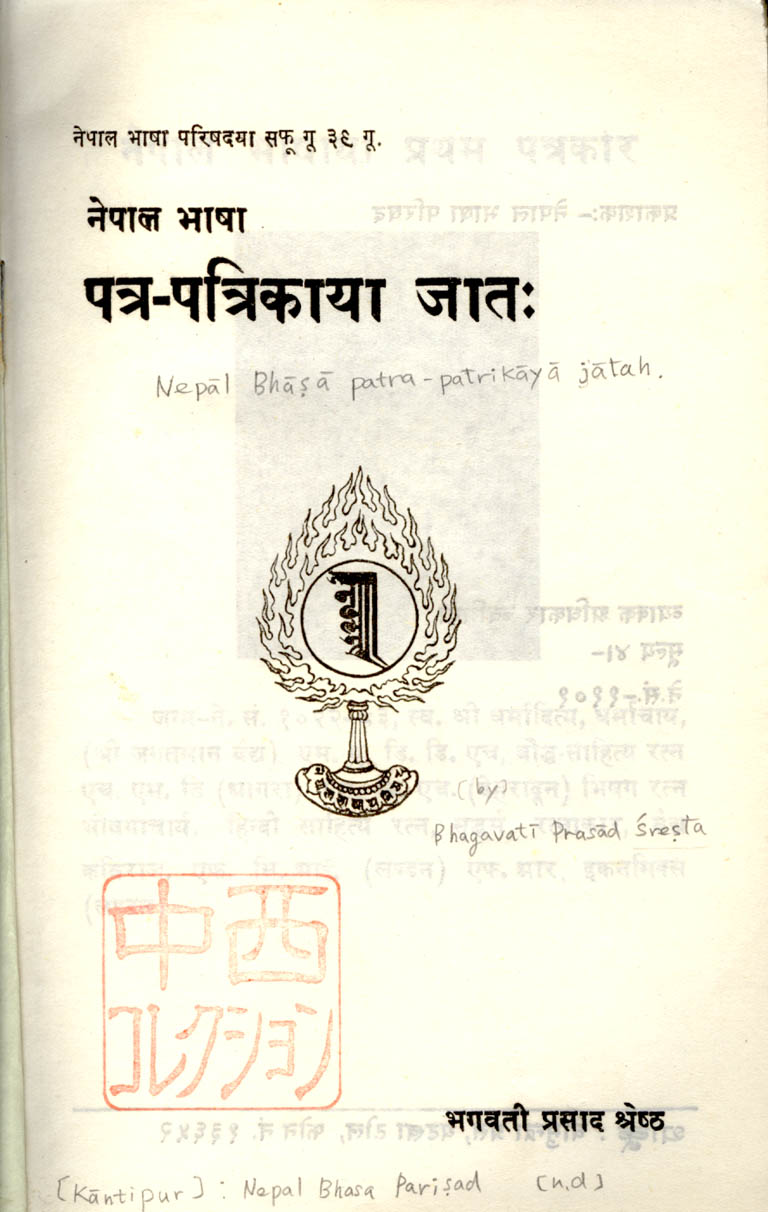 नेपाल भाषा परिषदया सफू गू ३९ गू.
नेपाल भाषा
पत्र-पत्रिकाया जातः
Nepāl Bhāṣā patra-patrikāyā jātah.
(by)
Bhagavatī Prasād Śreṣta
中西
コレクション
भगवती प्रसाद श्रेष्ठ
[Kāntipur] : Nepal Bhasa Pariṣad [n.d]